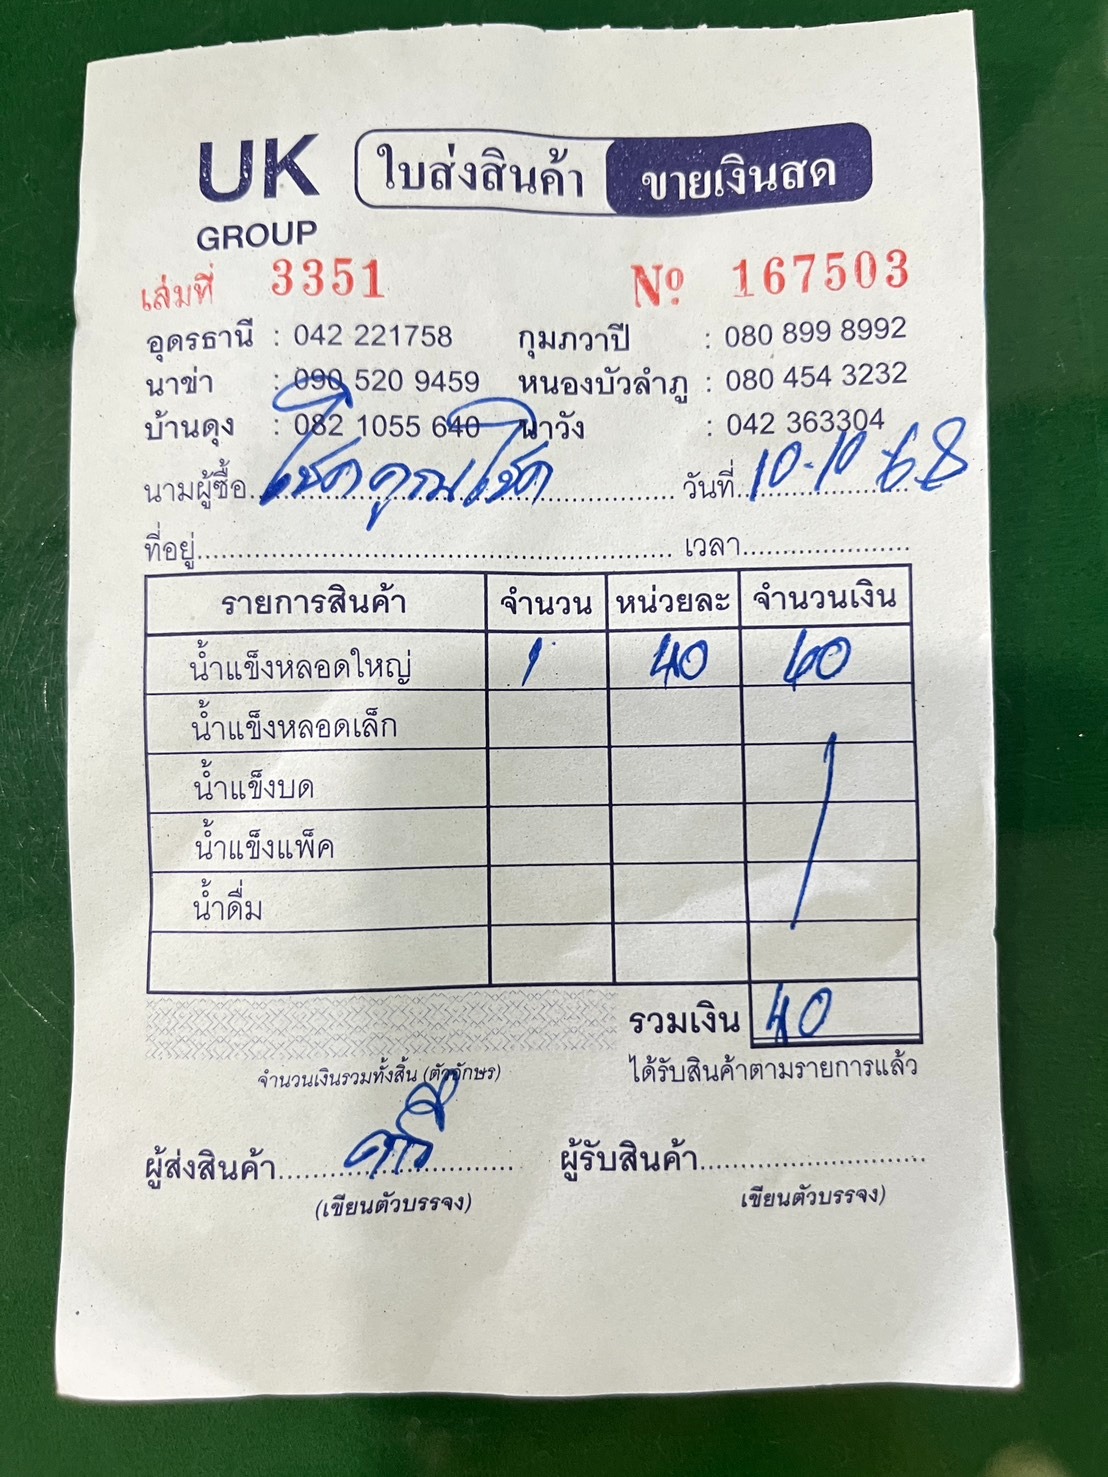 UK ใบส่งสินค้า ขายเงินสด
GROUP
เล่มที่ 3351 Nº 167503
อุดรธานี : 042 221758 กุมภวาปี : 080 899 8992
นาข่า : 090 520 9459 หนองบัวลำภู : 080 454 3232
บ้านดุง : 082 1055 640 นาวัง : 042 363304
นามผู้ซื้อ โชคคูณโชค วันที่ 10-10-68
ที่อยู่ เวลา
รายการสินค้า จำนวน หน่วยละ จำนวนเงิน
น้ำแข็งหลอดใหญ่ 1 40 40
น้ำแข็งหลอดเล็ก
น้ำแข็งบด
น้ำแข็งแพ็ค
น้ำดื่ม
รวมเงิน 40
จำนวนเงินรวมทั้งสิ้น (ตัวอักษร) ได้รับสินค้าตามรายการแล้ว
ผู้ส่งสินค้า ผู้รับสินค้า
(เขียนตัวบรรจง) เขียนตัวบรรจง)